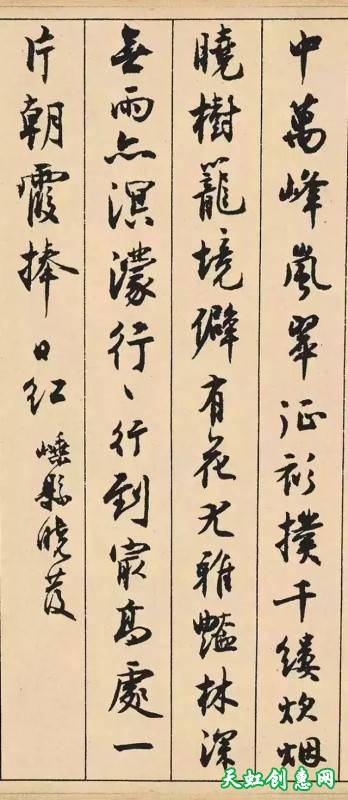 中萬峰嵐翠征衫撲千縷炊烟
曉樹籠境僻有花尤雅豔林深
無雨亦溟濛行〻行到最高處一
片朝霞捧日紅 嵊縣曉發
天虹创惠网